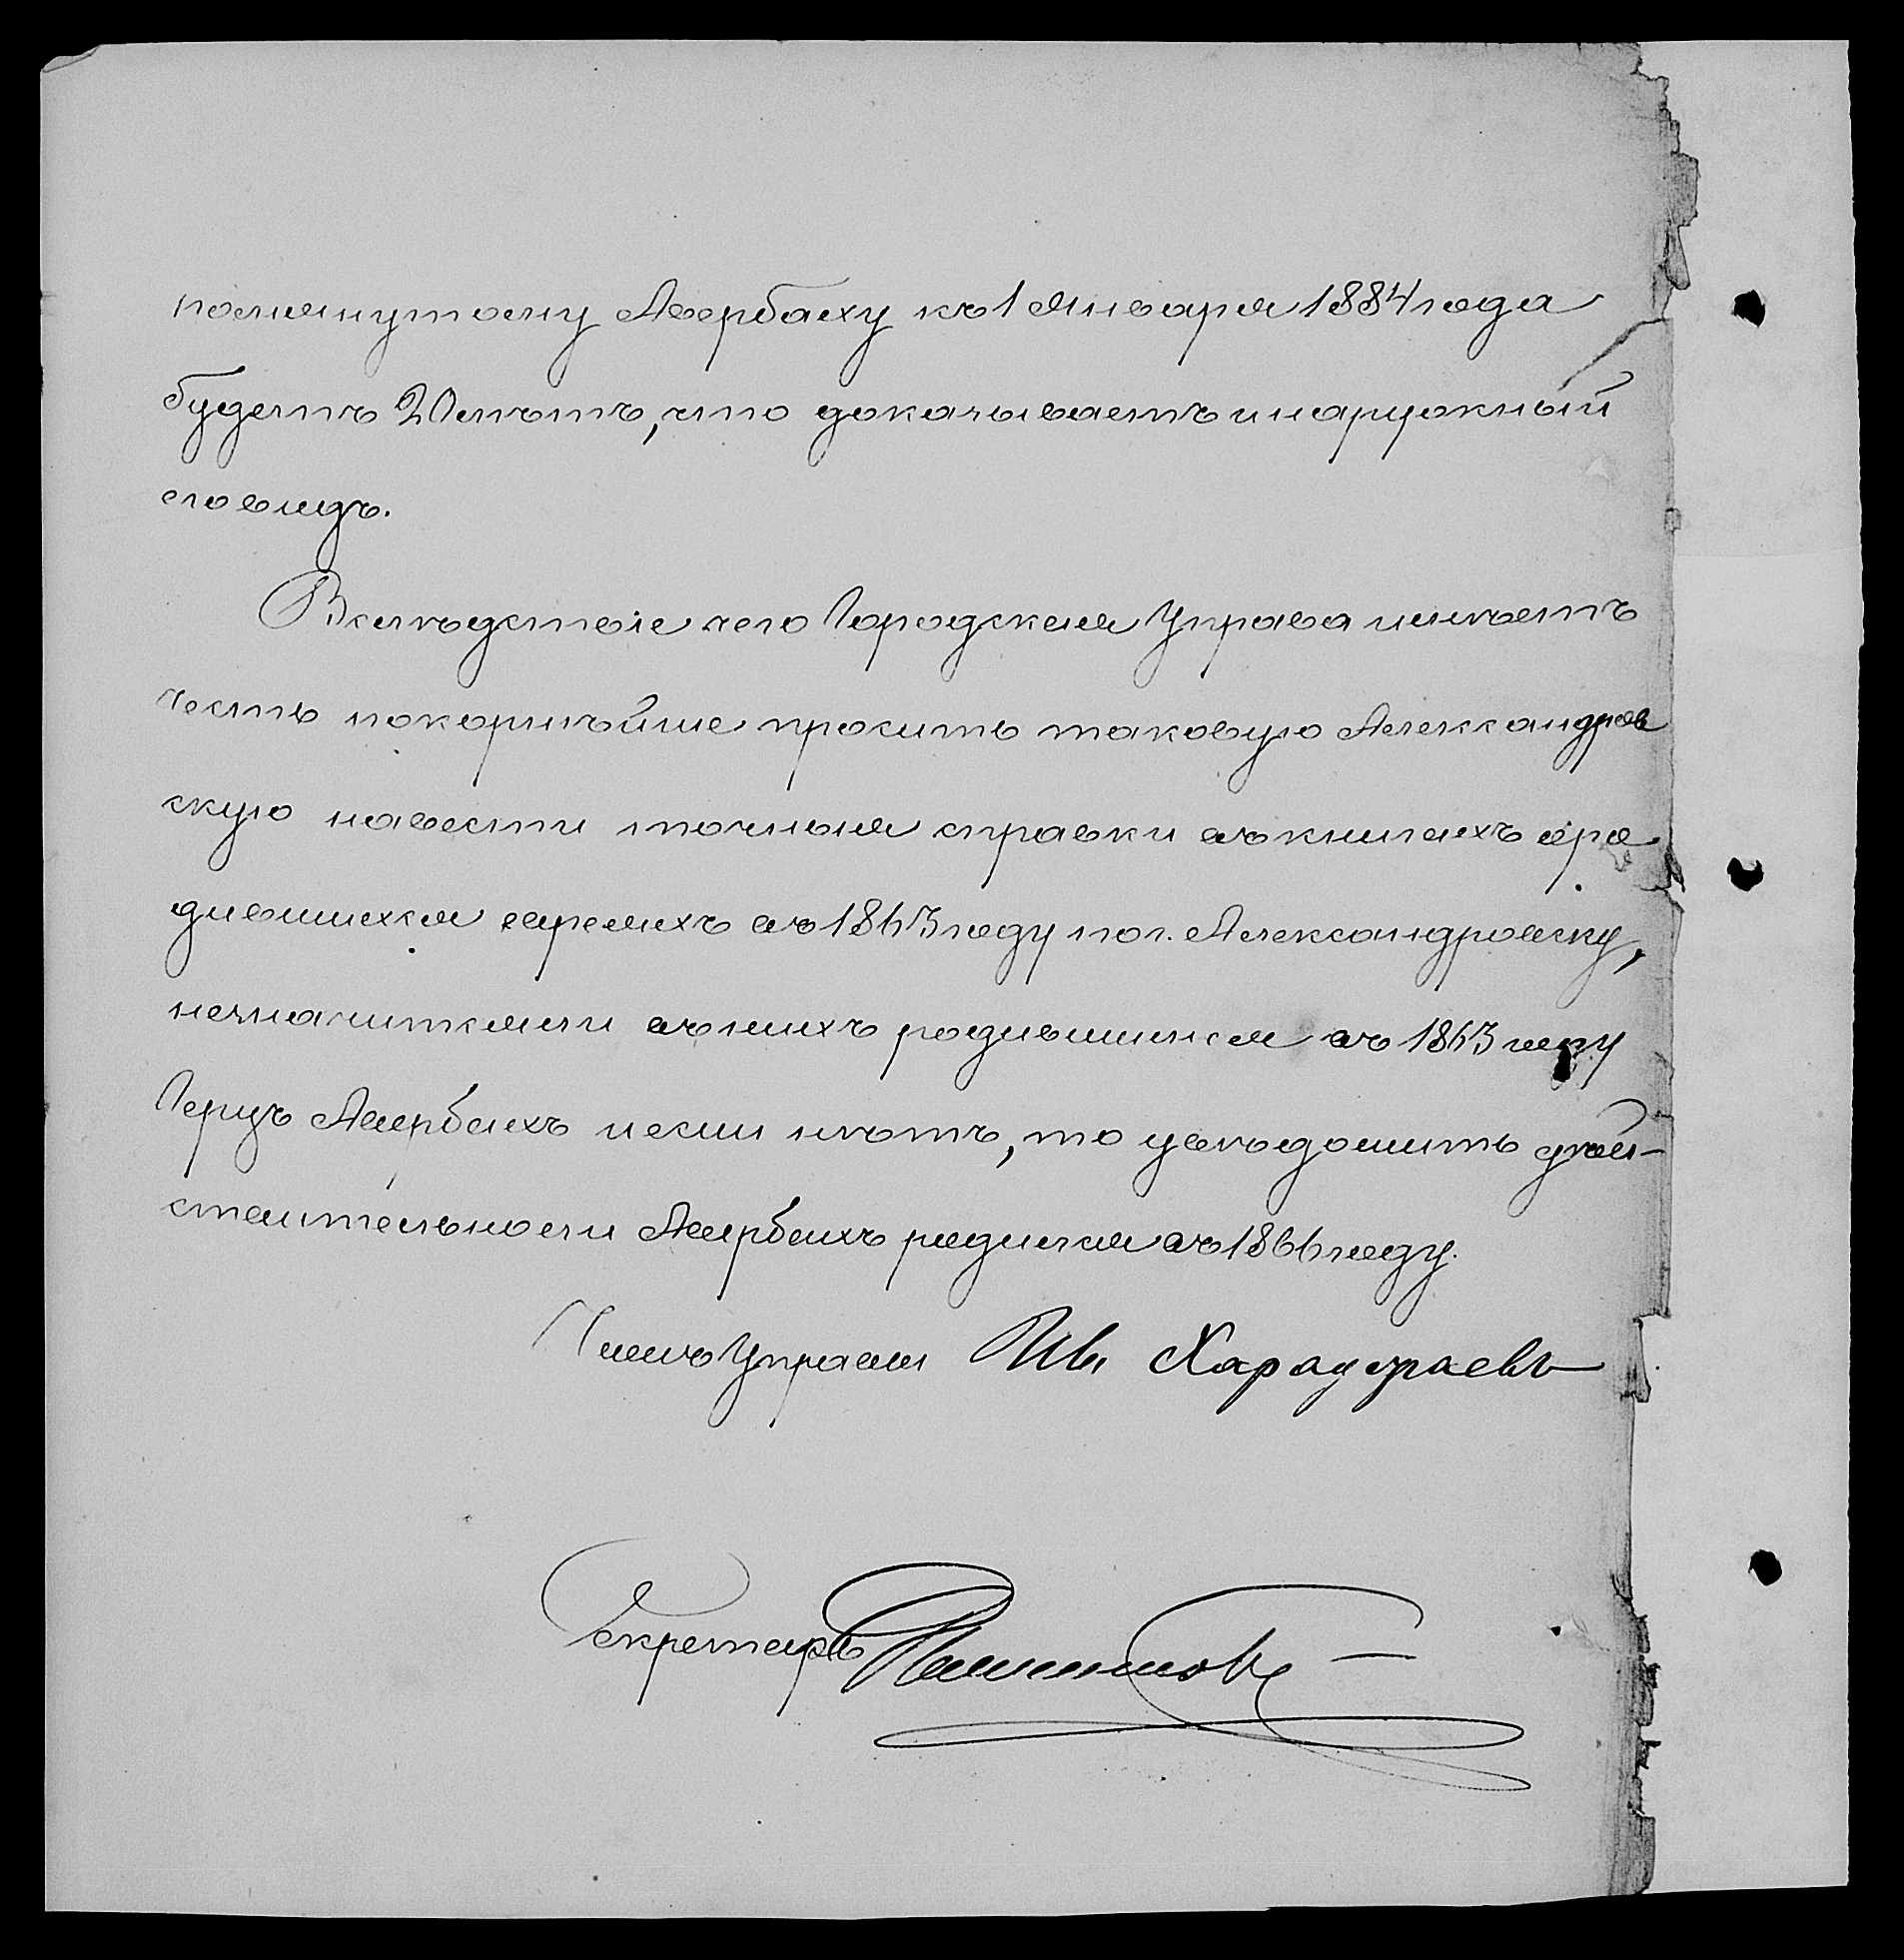 помянутому Авербаху къ 1 Января 1884 года
будетъ 20 лѣтъ, что доказываетъ и наружный
его видъ.
Вслѣдствіе чего Городская Управа имѣетъ
честь покорнѣйше просить таковую Александров
скую навести точныя справки въ книгахъ о ро
дившихся евреяхъ въ 1863 году по г. Александровску,
незначится ли въ нихъ родившимся въ 1863 году
Герцъ Авербахъ и если нѣтъ, то увѣдомить дѣй-
ствительно ли Авербахъ родился въ 1866 году.
Членъ Управы Ив
Секретарь